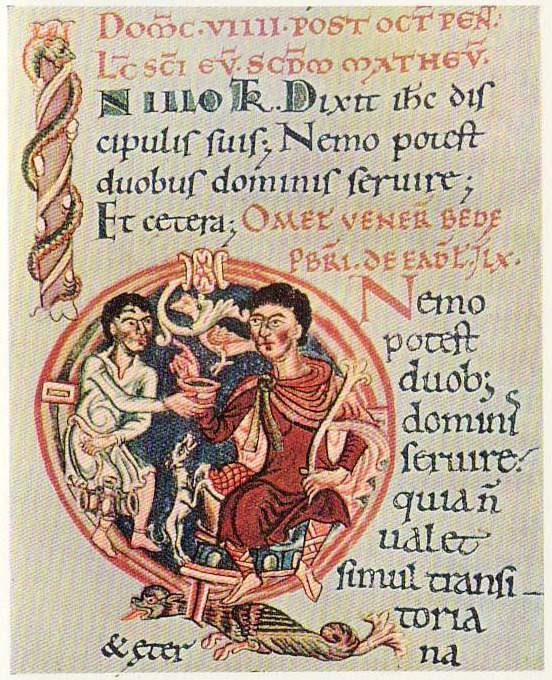 DOM̅C·VIIII·POST OCT̅ PEN̅·
LC̅ SC̅I EV̅·SCD̅M MATHEV̅·
IN ILLO T̅R. Dixit ihc dis
cipulis suis; Nemo potest
duobus dominis seruire;
Et cetera; OMEL̅ VENER̅ BEDE
PB̅RI·DE EAD̅ L̅·
Nemo
potest
duob;
domini
seruire:
quia n̅
ualet
simul transi
toria
& ęter na